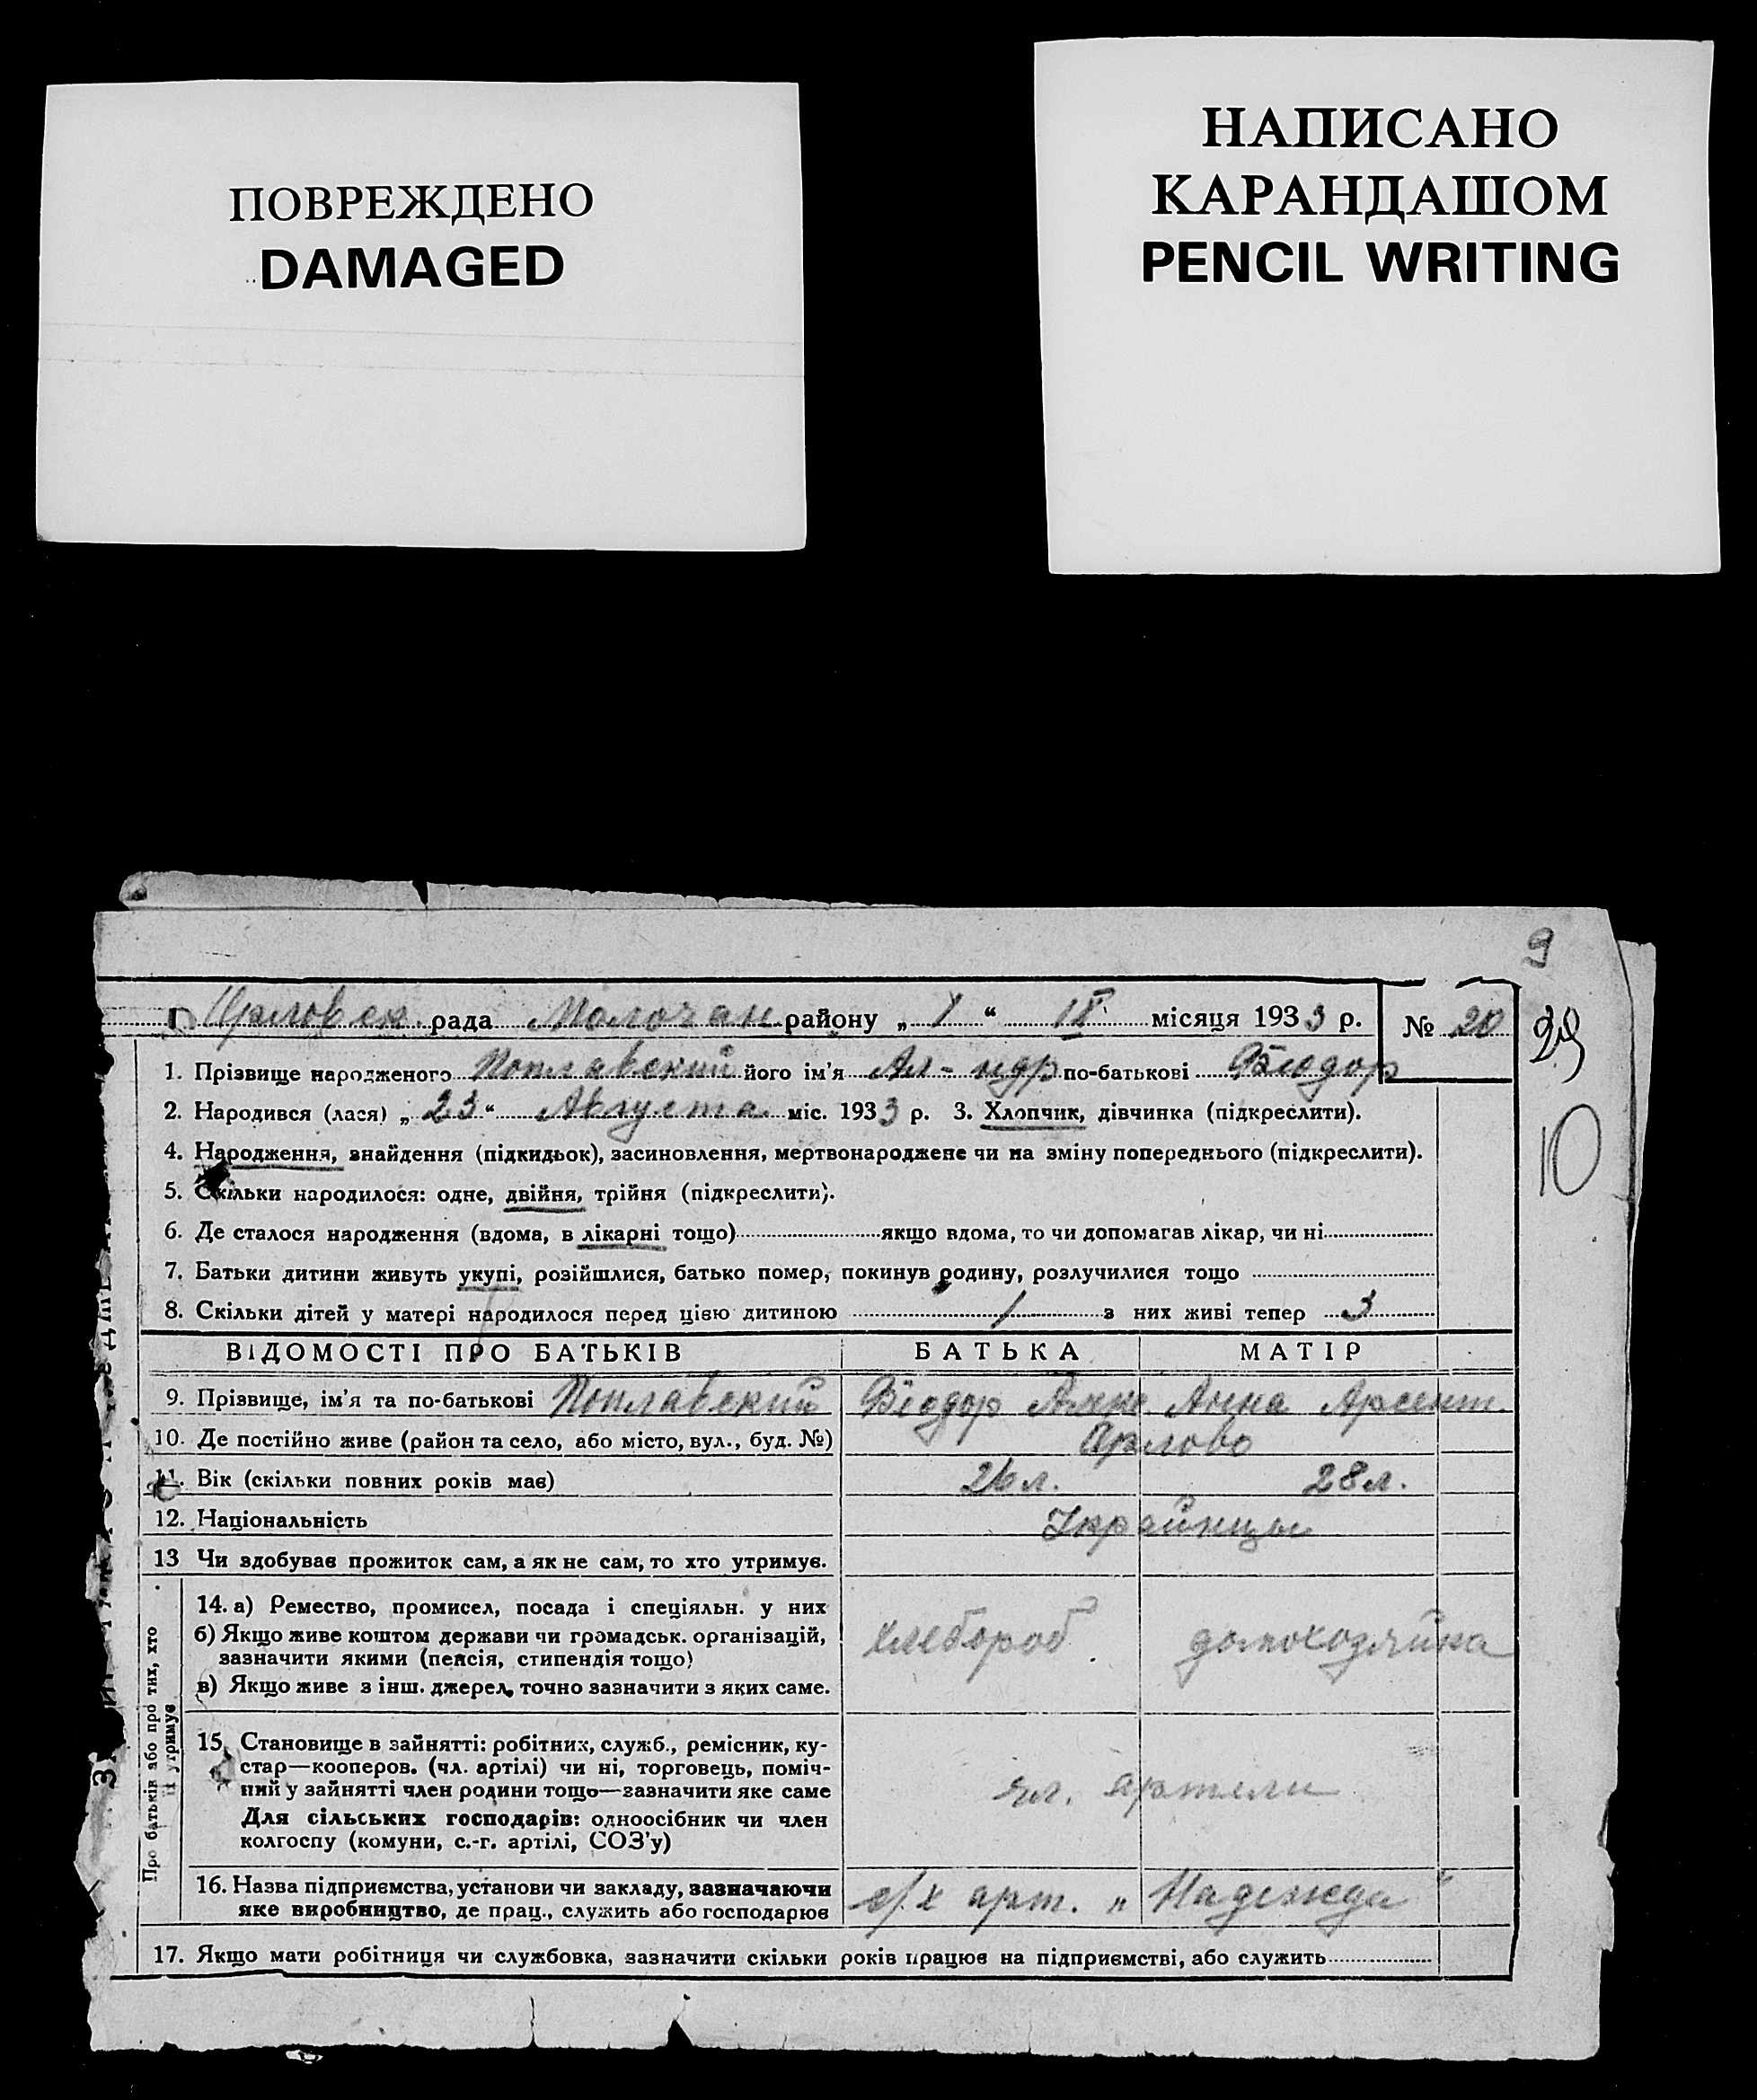 ПОВРЕЖДЕНО
DAMAGED
НАПИСАНО
КАРАНДАШОМ
PENCIL WRITING
9
рада Молочан району „ 1 “ IX місяця 1933 р. № 20
29
1. Прізвище народженого Поплавский його ім'я Ал-ндр по-батькові Фѣодор
2. Народився (лася) „ 23 “ Августа міс. 1933 р. 3. Хлопчик, дівчинка (підкреслити).
10
4. Народження, знайдення (підкидьок), засиновлення, мертвонароджене чи на зміну попереднього (підкреслити).
5. Скільки народилося: одне, двійня, трійня (підкреслити).
6. Де сталося народження (вдома, в лікарні тощо) якщо вдома, то чи допомагав лікар, чи ні
7. Батьки дитини живуть укупі, розійшлися, батько помер, покинув родину, розлучилися тощо
8. Скільки дітей у матері народилося перед цією дитиною 1 з них живі тепер 3
ВІДОМОСТІ ПРО БАТЬКІВ БАТЬКА МАТІР
9. Прізвище, ім'я та по-батькові Поплавский Анна Арсент.
10. Де постійно живе (район та село, або місто, вул., буд. №) Арлово
11. Вік (скільки повних років має) 26 л. 28 л.
12. Національність Украйнцы
13 Чи здобував прожиток сам, а як не сам, то хто утримує.
Про батьків або про тих, хто
її утримує
14. а) Ремество, промисел, посада і спеціяльн. у них
б) Якщо живе коштом держави чи громадськ. організацій,
зазначити якими (пенсія, стипендія тощо)
в) Якщо живе з інш. джерел, точно зазначити з яких саме.
хлебороб. домохозяйка
15. Становище в зайнятті: робітник, служб., ремісник, ку-
стар—кооперов. (чл. артілі) чи ні, торговець, поміч-
ний у зайнятті член родини тощо—зазначити яке саме
Для сільських господарів: одноосібник чи член
колгоспу (комуни, с.-г. артілі, СОЗ'у)
чл. артели
16. Назва підприємства, установи чи закладу, зазначаючи
яке виробництво, де прац., служить або господарює
с/х арт. „ Надежда “
17. Якщо мати робітниця чи службовка, зазначити скільки років працює на підприємстві, або служить